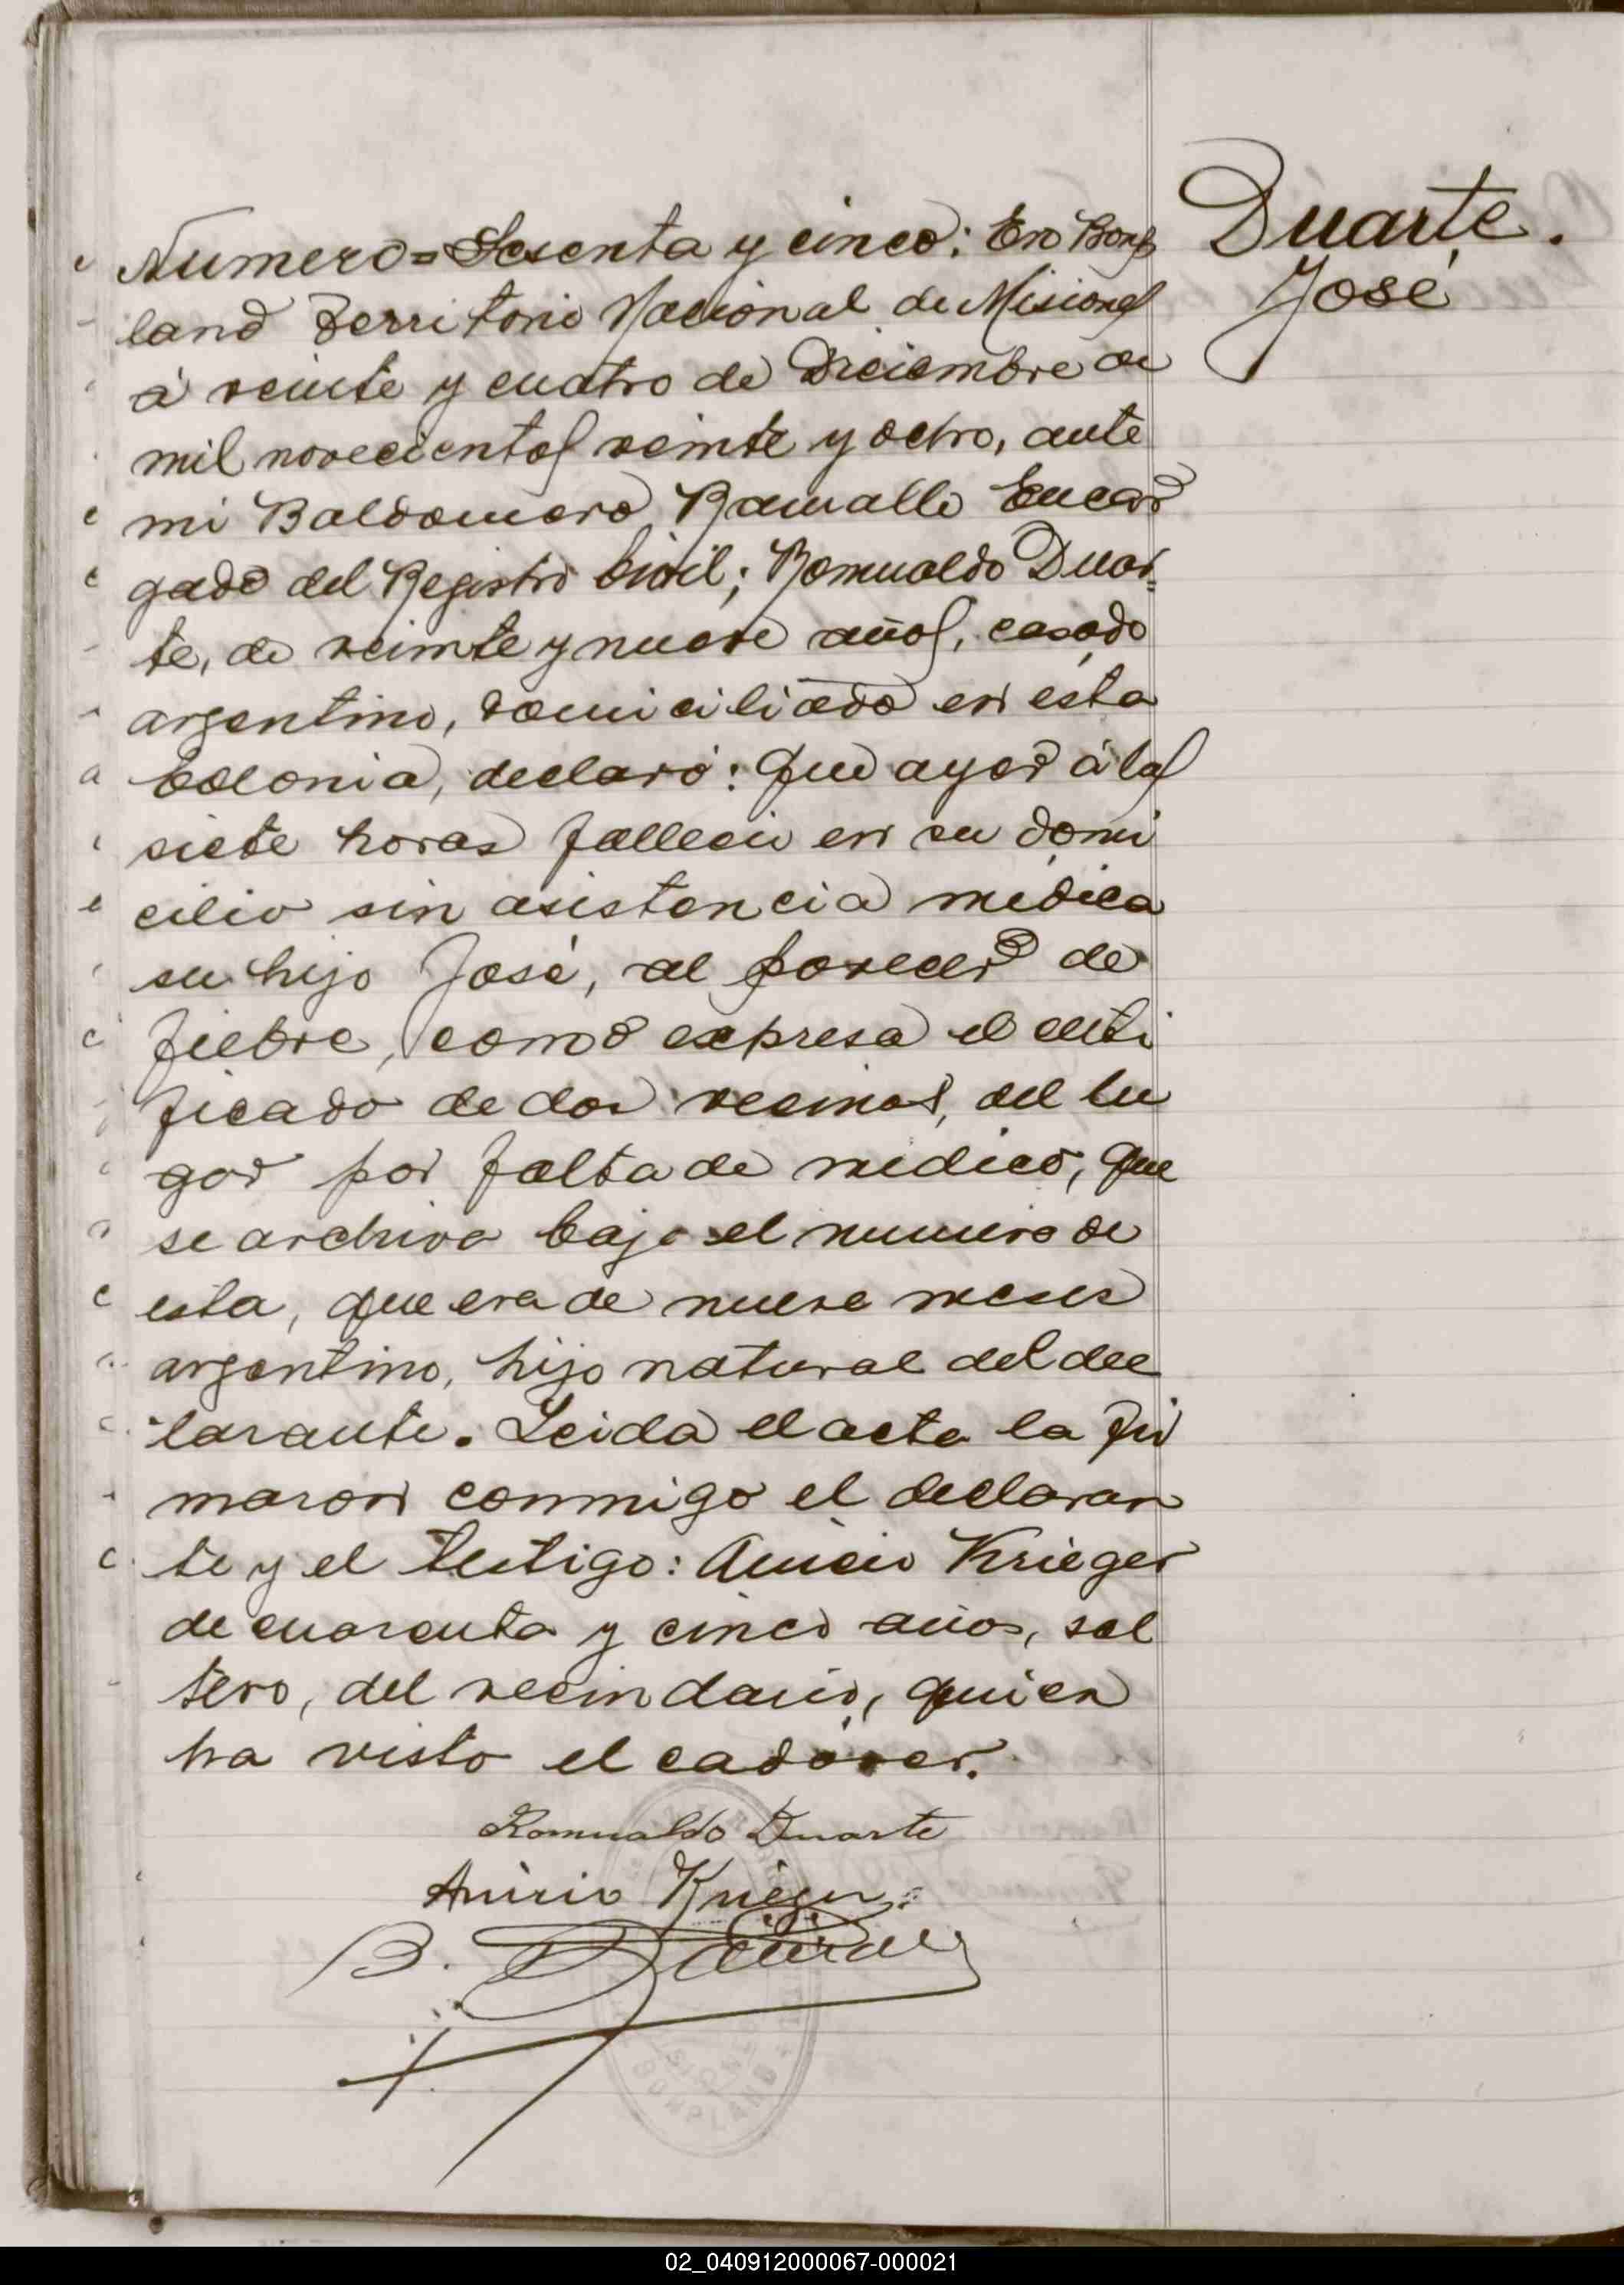 Duarte.
José
Numero=Sesenta y cinco: En Bonp
land Territorio Nacional de Misiones
á veinte y cuatro de Diciembre de
mil novecientos veinte y ocho, ante
mi Baldomero Ramallo Encar
gado del Registro Civil; Romualdo Duar=
te, de veinte y nueve años, casado
argentino, domiciliado en ésta
Colonia, declaró: Que ayer á las
siete horas falleció en su domi
cilio sin asistencia médica
su hijo José, al parecer de
fiebre, como expresa el certi
ficado de dos vecinos, del lu
gar por falta de médico, que
se archiva bajo el numero de
esta, que era de nueve meses
argentino, hijo natural del dec
larante. Leida el acta la fir
maron conmigo el declaran
te y el testigo: Anicio Krieger
de cuarenta y cinco años, sol
tero, del vecindario, quien
ha visto el cadáver.
Romualdo Duarte
Anicio Krieger
B.
BONPLAND
02_040912000067-000021